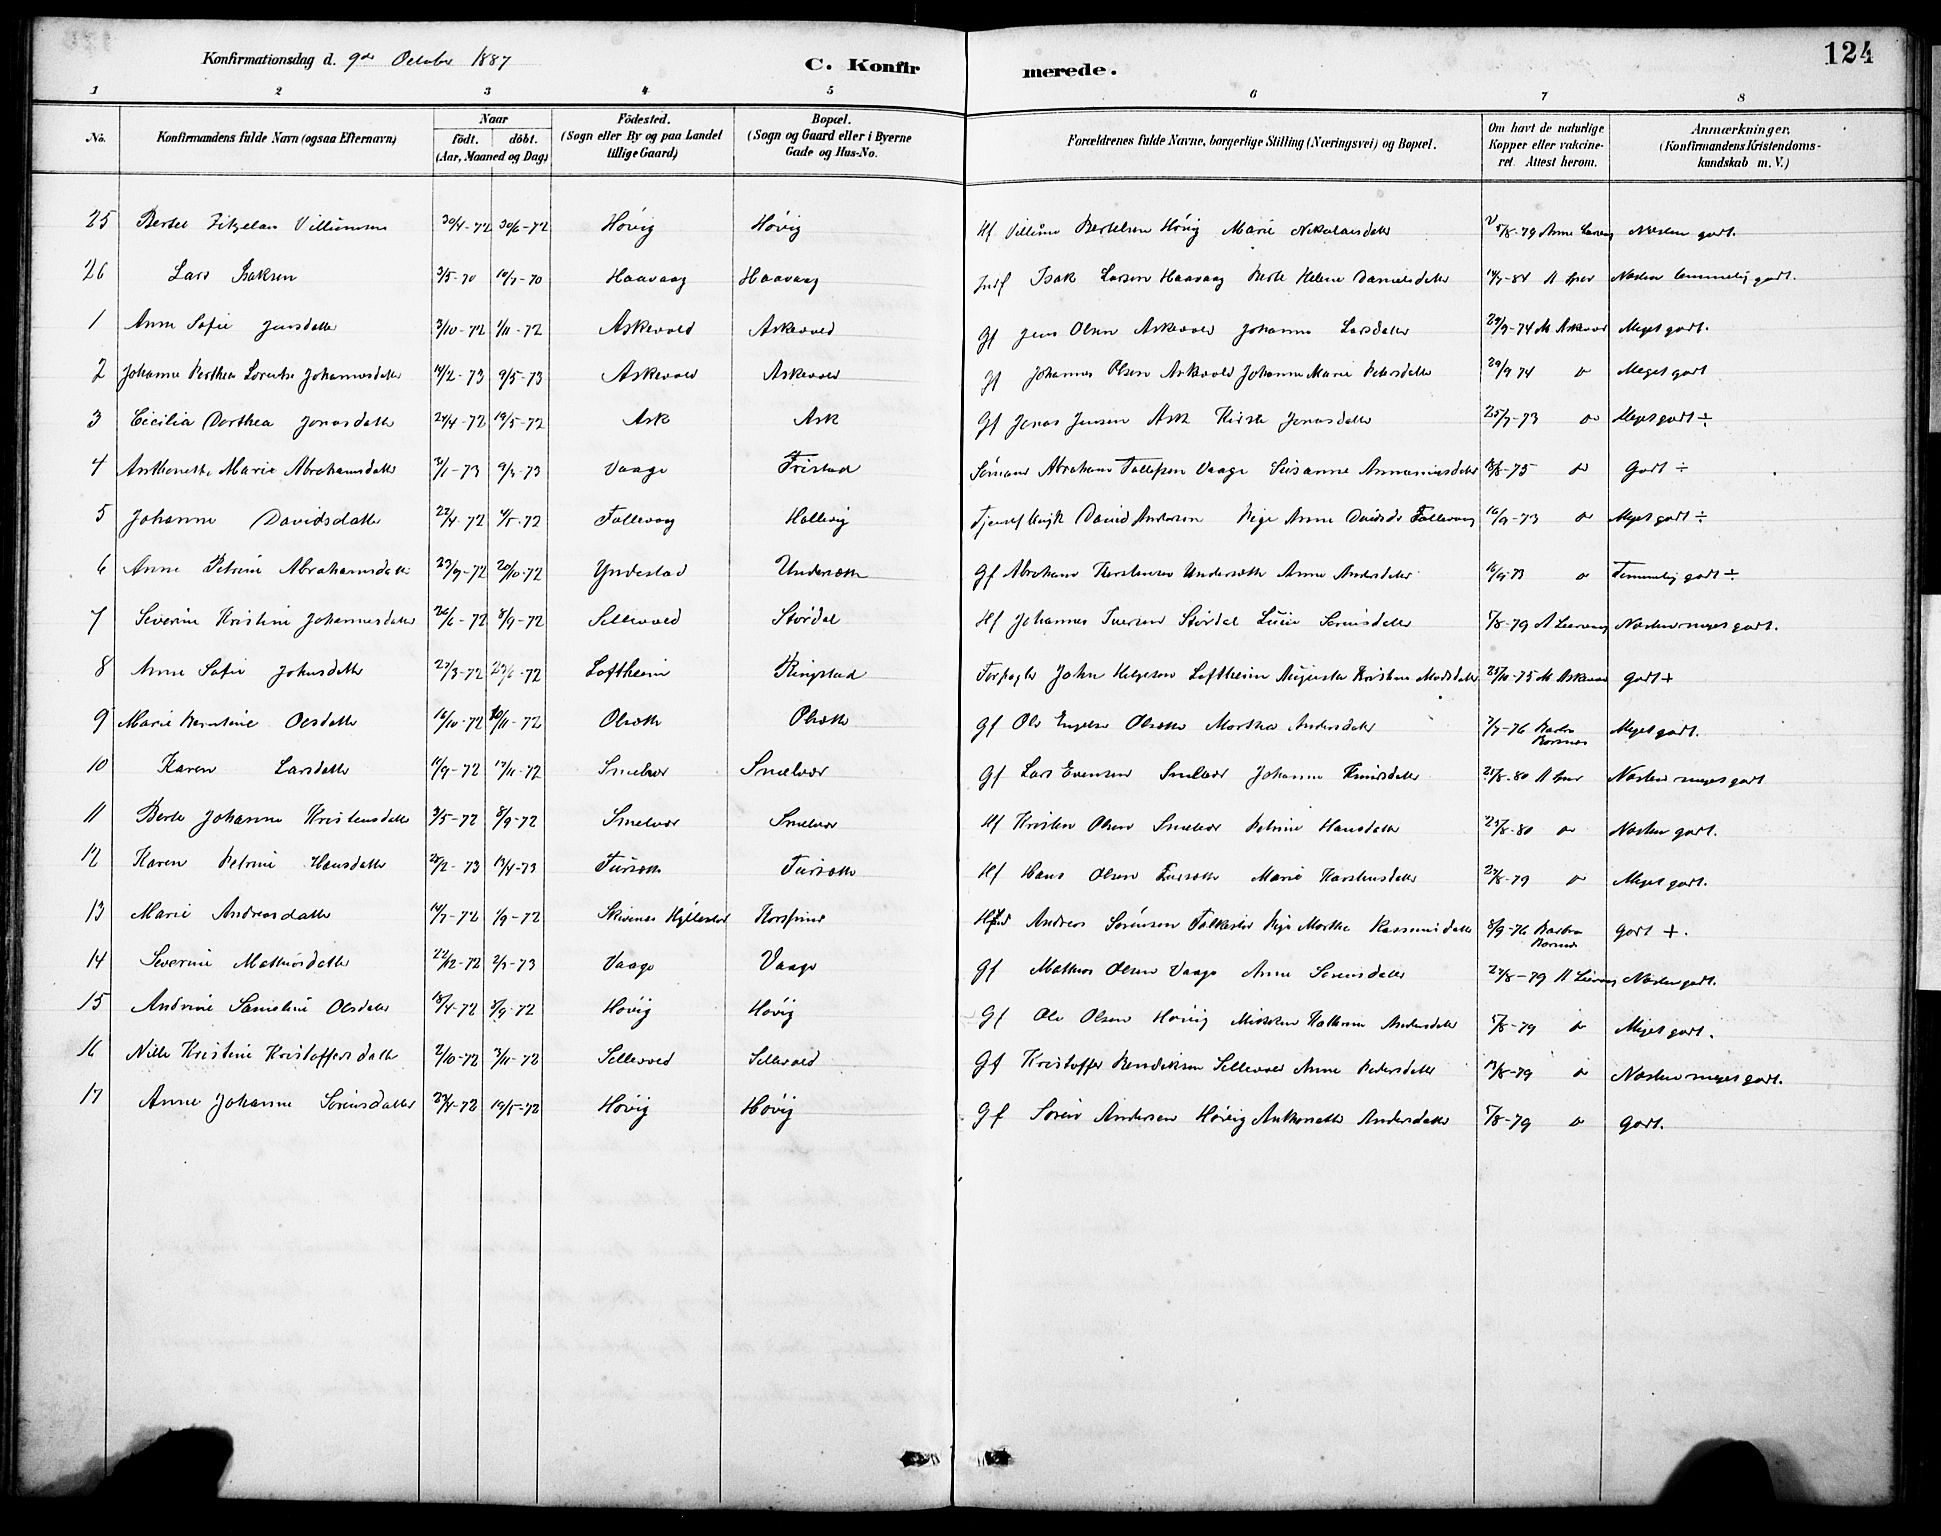 Konfirmationsdag d. 9de October 1887
C. Konfirmerede.
124
1 2 3 4 5 6 7 8
No. Konfirmandens fulde Navn (ogsaa Efternavn) Naar født. døbt. (Aar, Maaned og Dag) Fødested. (Sogn eller By og paa Landet tillige Gaard) Bopæl. (Sogn og Gaard eller i Byerne Gade og Hus-No. Forældrenes fulde Navne, borgerlige Stilling (Næringsvei) og Bopæl. Om havt de naturlige Kopper eller vakcineret. Attest herom. Anmærkninger, (Konfirmandens Kristendomskundskab m. V.)
25 Bertel Villumsen 30/4-72 30/6-72 Høvig Høvig Hf Villum Bertelsen Høvig Marie Nikolaisdatter 5/8-79 Næsten godt.
26 Lars Isaksen 3/5-70 -70 Haavaag Haavaag Isak Larsen Haavaag Berte Helene Danielsdatter -84 Næsten temmelig godt.
1 Anne Sofie Jensdatter 3/10-72 1/11-72 Askevold Askevold Gf Jens Olsen Askevold Johanne Larsdatter 29/9-74 M Askevold Meget godt.
2 Johanne Berthea Lorentse Johannesdatter 14/2-73 9/5-73 Askevold Askevold Gf Johannes Olsen Askevold Johanne Marie Petersdatter 29/9 74 Meget godt
3 Cecilia Dorthea Jonasdatter 24/4-72 19/5-72 Ask Ask Gf Jonas Jensen Ask Kirste Jonasdatter -73 Meget godt ÷
4 Anthonette Marie Abrahamsdatter -73 -73 Vaage Fristad Abraham Tollefsen Vaage Susanne Annaniasdatter -75 Godt ÷
5 Johanne Davidsdatter 22/4-72 -72 Follevaag Hellevig David Andersen Pige Anne Davidsd Follevaag 16/9-73 Meget godt ÷
6 Anne Petrine Abrahamsdatter 23/9-72 20/10-72 Yndestad Undersæth Gf Abraham Undersæth Anne Andersdatter -73 Temmelig godt ÷
7 Severine Kristine Johannesdatter 26/6-72 8/9-72 Sellevold Stordal Hf Johannes Iversen Stordal Sørensdatter 5/8-79 Næsten meget godt.
8 Anne Sofie Johnsdatter 27/3-72 -72 Loftheim Ringstad Forpagter John Helgesen Loftheim Augusta Kristine Madsdatter -75 M Askevold godt +
9 Marie Berntine Olsdatter 16/10-72 10/11-72 Olsæth Olsæth Gf Ole Engelsen Olsæth Martha Andersdatter -76 Barbra Meget godt.
10 Karen Larsdatter 11/9-72 17/11-72 Smelvær Smelvær Gf Lars Evensen Smelvær Johanne Knudsdatter -80 Næsten meget godt
11 Berte Johanne Kristensdatter 3/5-72 8/9-72 Smelvær Smelvær Hf Kristen Olsen Smelvær Petrine Hansdatter -80 Næsten godt.
12 Karen Petrine Hansdatter -73 13/4-73 Fursæth Fursæth Hf Hans Olsen Fursæth Marie Karstensdatter -79 Meget godt.
13 Marie Andreasdatter 14/7-72 1/9-72 Skivenes Hyllestad Korsfund Andreas Sørensen Pige Marthe Rasmusdatter 8/9-76 Barbra godt +.
14 Severine Mathiasdatter 22/12-72 -73 Vaage Vaage Gf Mathias Olsen Vaage Anne Sørensdatter -79 Næsten godt.
15 Andrine Samoline Olsdatter 18/4-72 8/9-72 Høvig Høvig Gf Ole Olsen Høvig Katrine Andersdatter 5/8-79 Meget godt.
16 Nille Kristine Kristoffersdatter 2/10-72 3/11-72 Sellevold Sellevold Gf Kristoffer Bendiksen Sellevold Anne Pedersdatter -79 Næsten meget godt.
17 Anne Johanne Sørensdatter -72 19/5-72 Høvig Høvig Gf Søren Andersen Høvig Anthonette Andersdatter 5/8-79 godt.